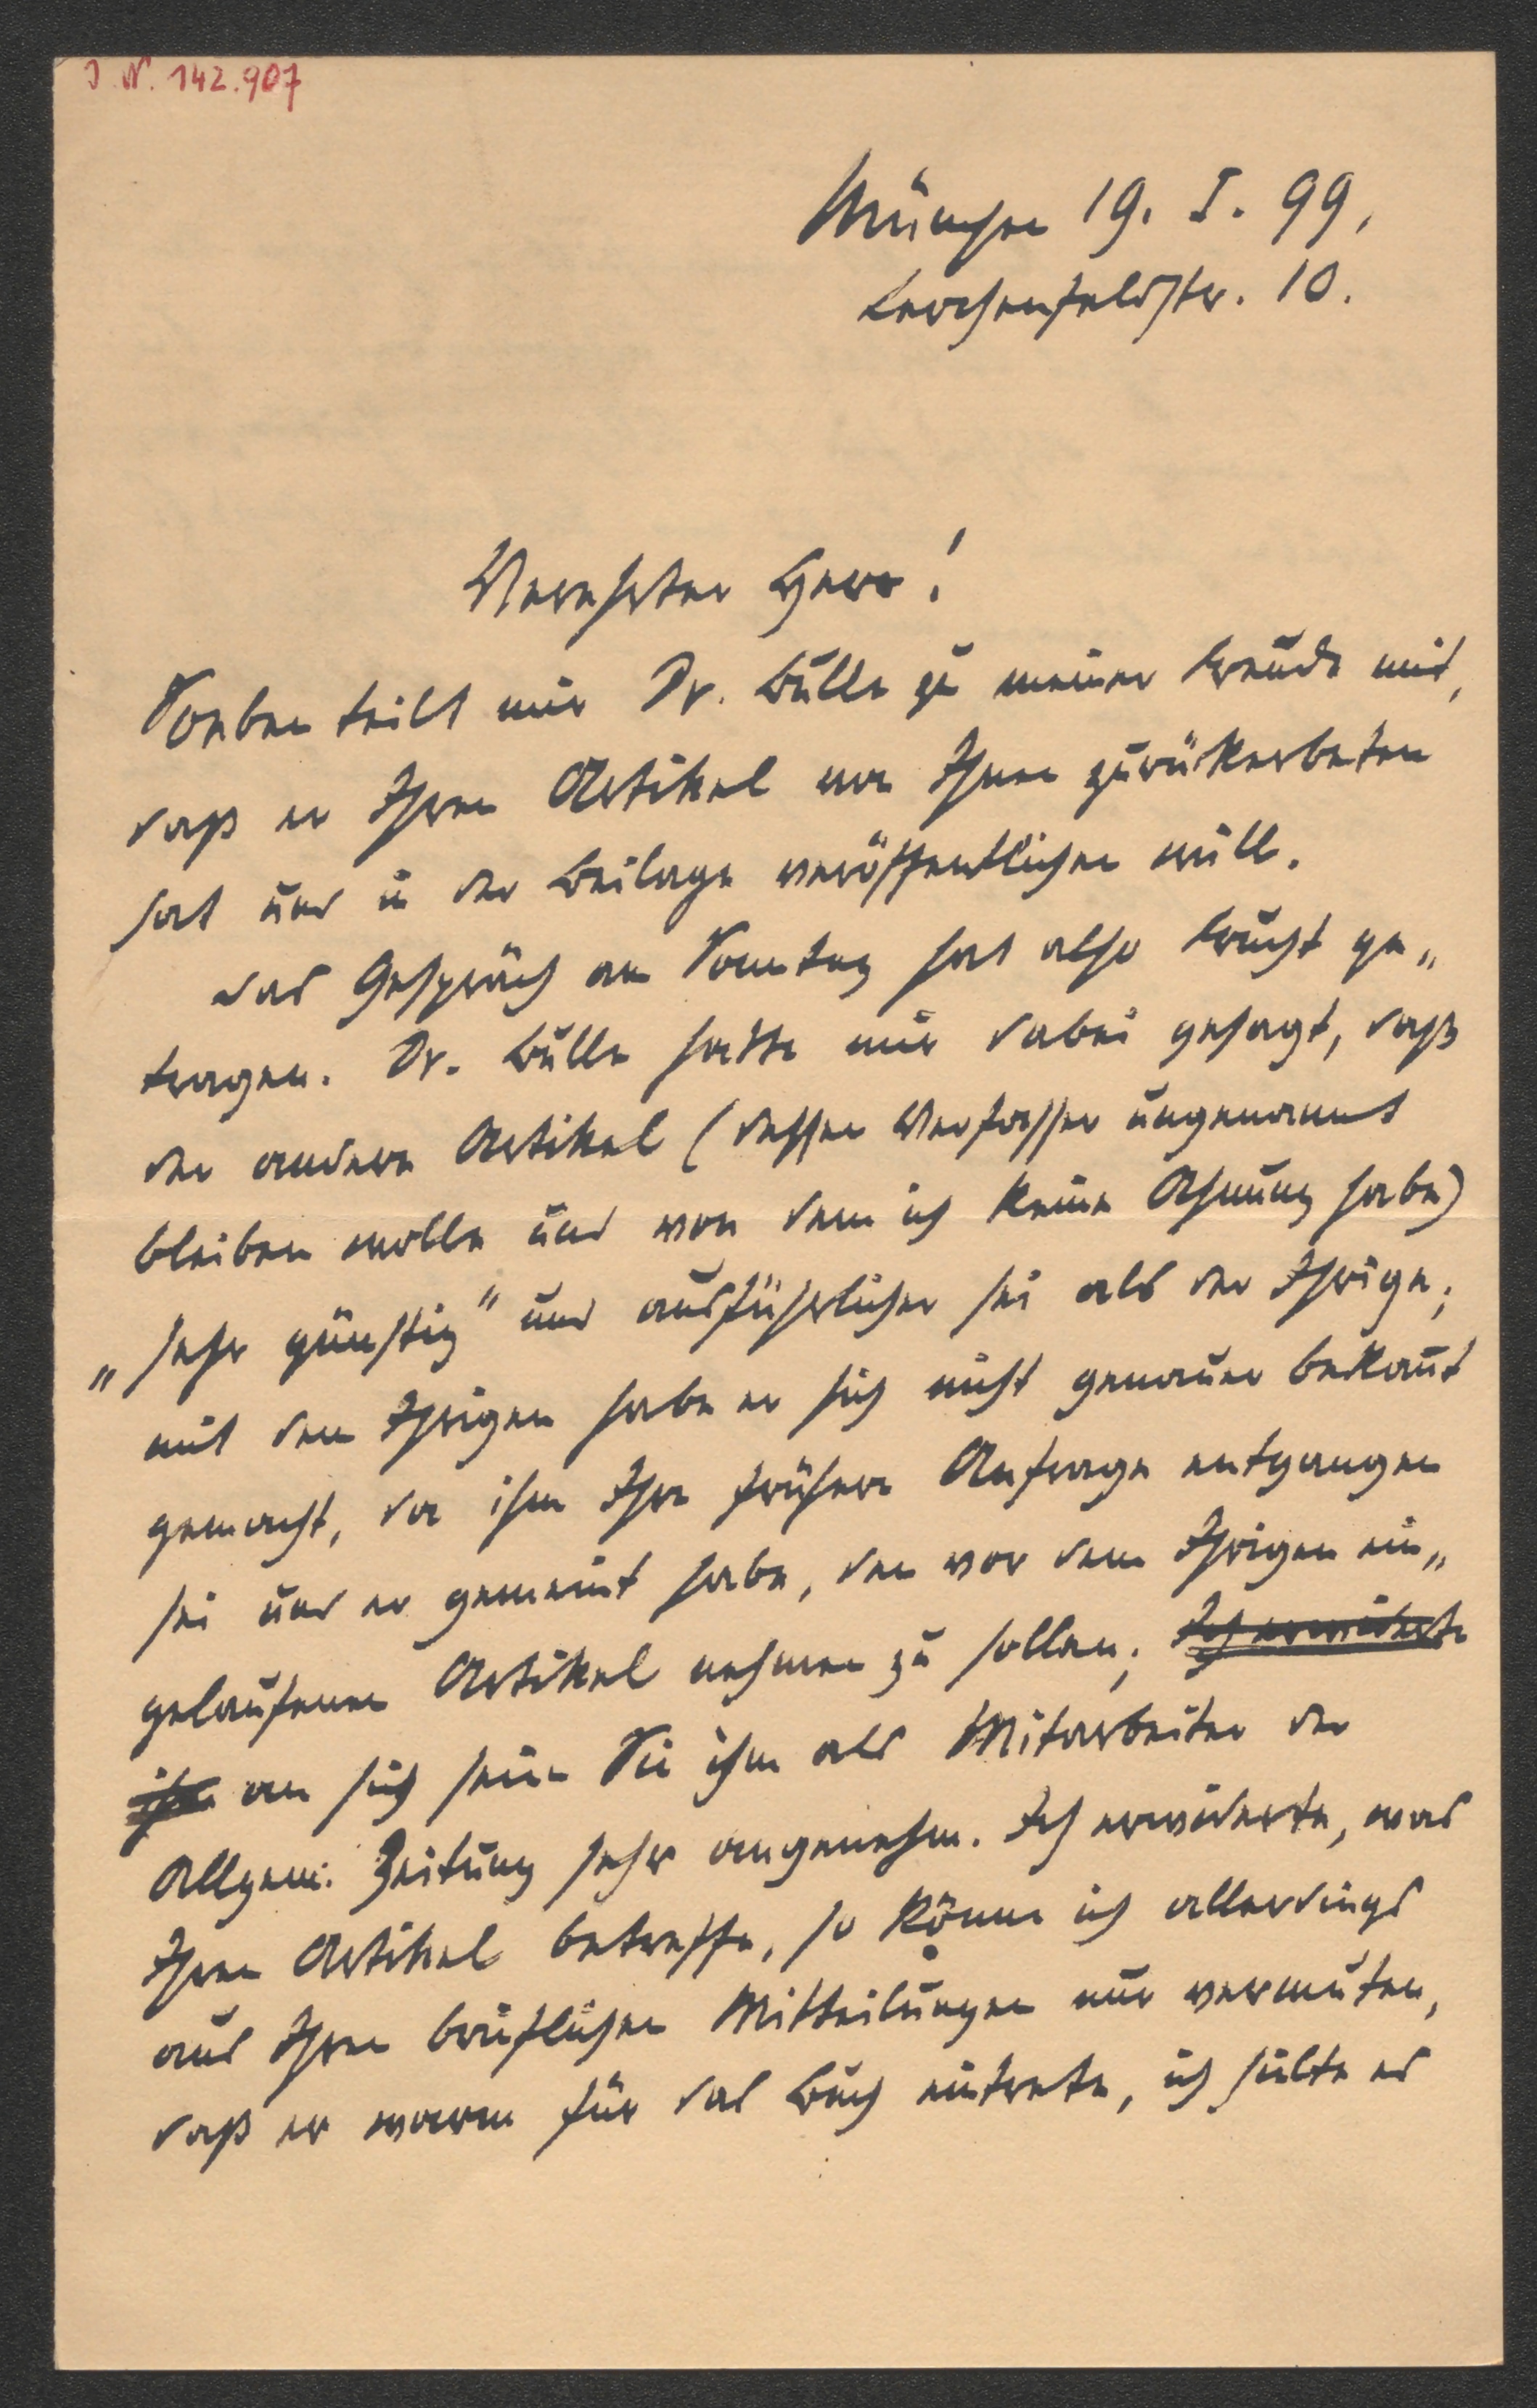 I. N. 142.907
München 19. I. 99,
Lerchenfeldstr. 10.
Verehrter Herr!
Soeben teilt mir Dr. Bulle zu meiner Freude mit,
daß er Ihren Artikel von Ihnen zurükerbeten
hat und in der Beilage veröffentlichen will.
Das Gespräch am Sonntag hat also Frucht ge„
tragen. Dr. Bulle hatte mir dabei gesagt, daß
der andere Artikel (dessen Verfasser ungenannt
bleiben wolle und von dem ich keine Ahnung habe)
„sehr günstig“ und ausführlicher sei als der Ihrige;
mit dem Ihrigen habe er sich nicht genauer bekannt
gemacht, da ihm Ihre frühere Anfrage entgangen
sei und er gemeint habe, den vor dem Ihrigen ein„
gelaufenen Artikel nehmen zu sollen; Ich erwiderte
ihm an sich seien Sie ihm als Mitarbeiter der
Allgem. Zeitung sehr angenehm. Ich erwiderte, was
Ihren Artikel betreffe, so könne ich allerdings
aus Ihren brieflichen Mitteilungen nur vermuten,
daß er warm für das Buch eintrete, ich hielte es